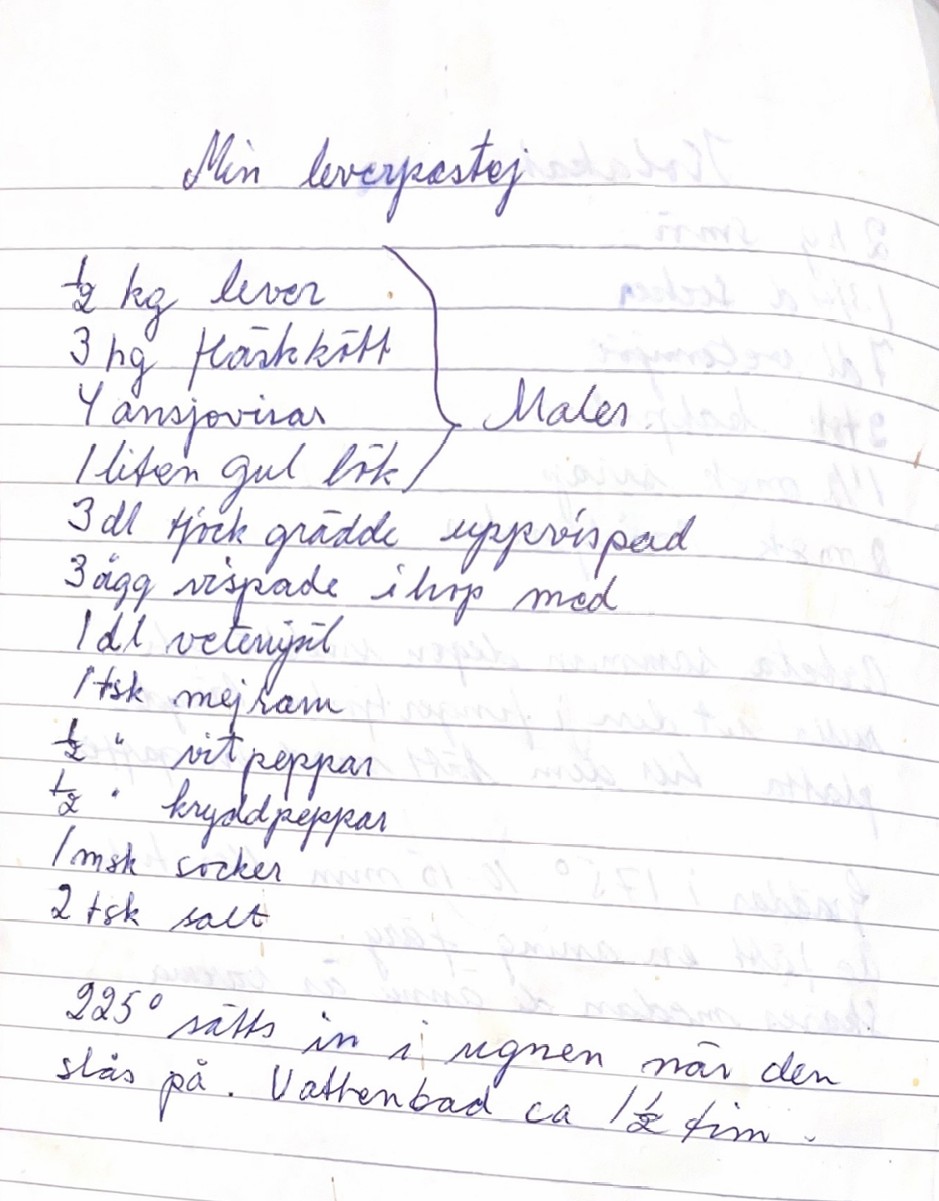 Min leverpastej
½ kg lever
3 hg fläskkött
4 ansjovisar
Males
1 liten gul lök
3 dl tjock grädde uppvispad
3 ägg vispade ihop med
1 dl vetemjöl
1 tsk mejram
½ " vitpeppar
½ " kryddpeppar
1 msk socker
2 tsk salt
225° sätts in i ugnen när den
slås på. Vattenbad ca 1½ tim.